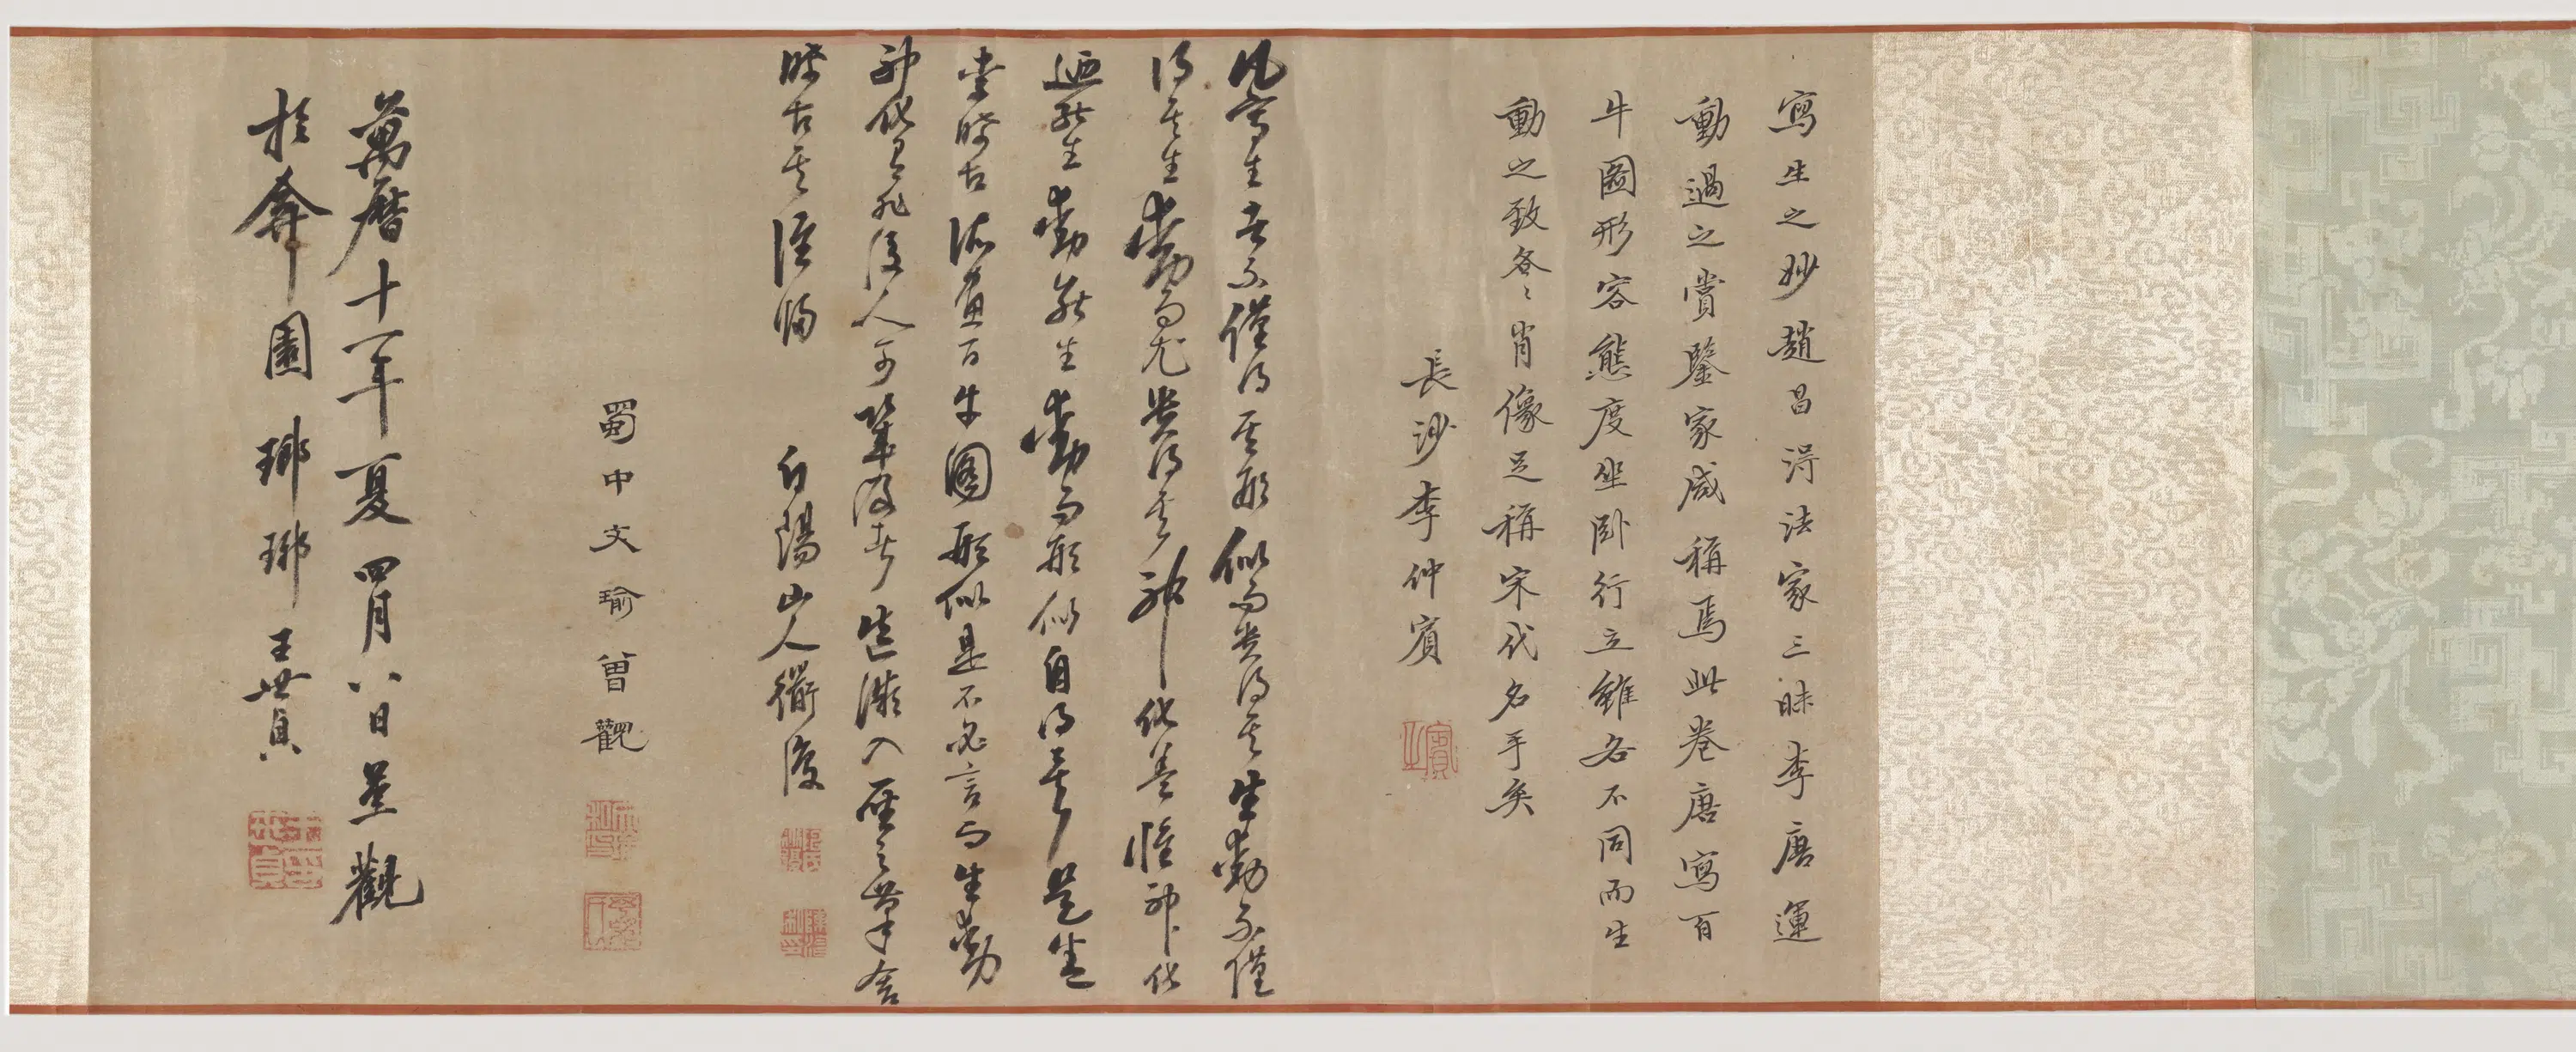 寫生之妙趙昌淂法家三昧李唐運
動過之賞鑒家咸稱焉此卷唐寫百
牛圖形容態度坐卧行立雖各不同而生
動之致各〻肖像足稱宋代名手矣
長沙李仲賓
凡寫生者不僅得其形似而貴得其生動不僅
得其生動而尤貴得其神化蓋惟神化
迺能生動能生動而形似自得矣是
晞古所畫百牛圖形似是不必言而生動
神化又非後人可
入
舍
晞古其誰歸　白陽山人衟復
蜀中文瑜曾觀
萬曆十一年夏四月八日並觀
於弇園瑯琊王世貞